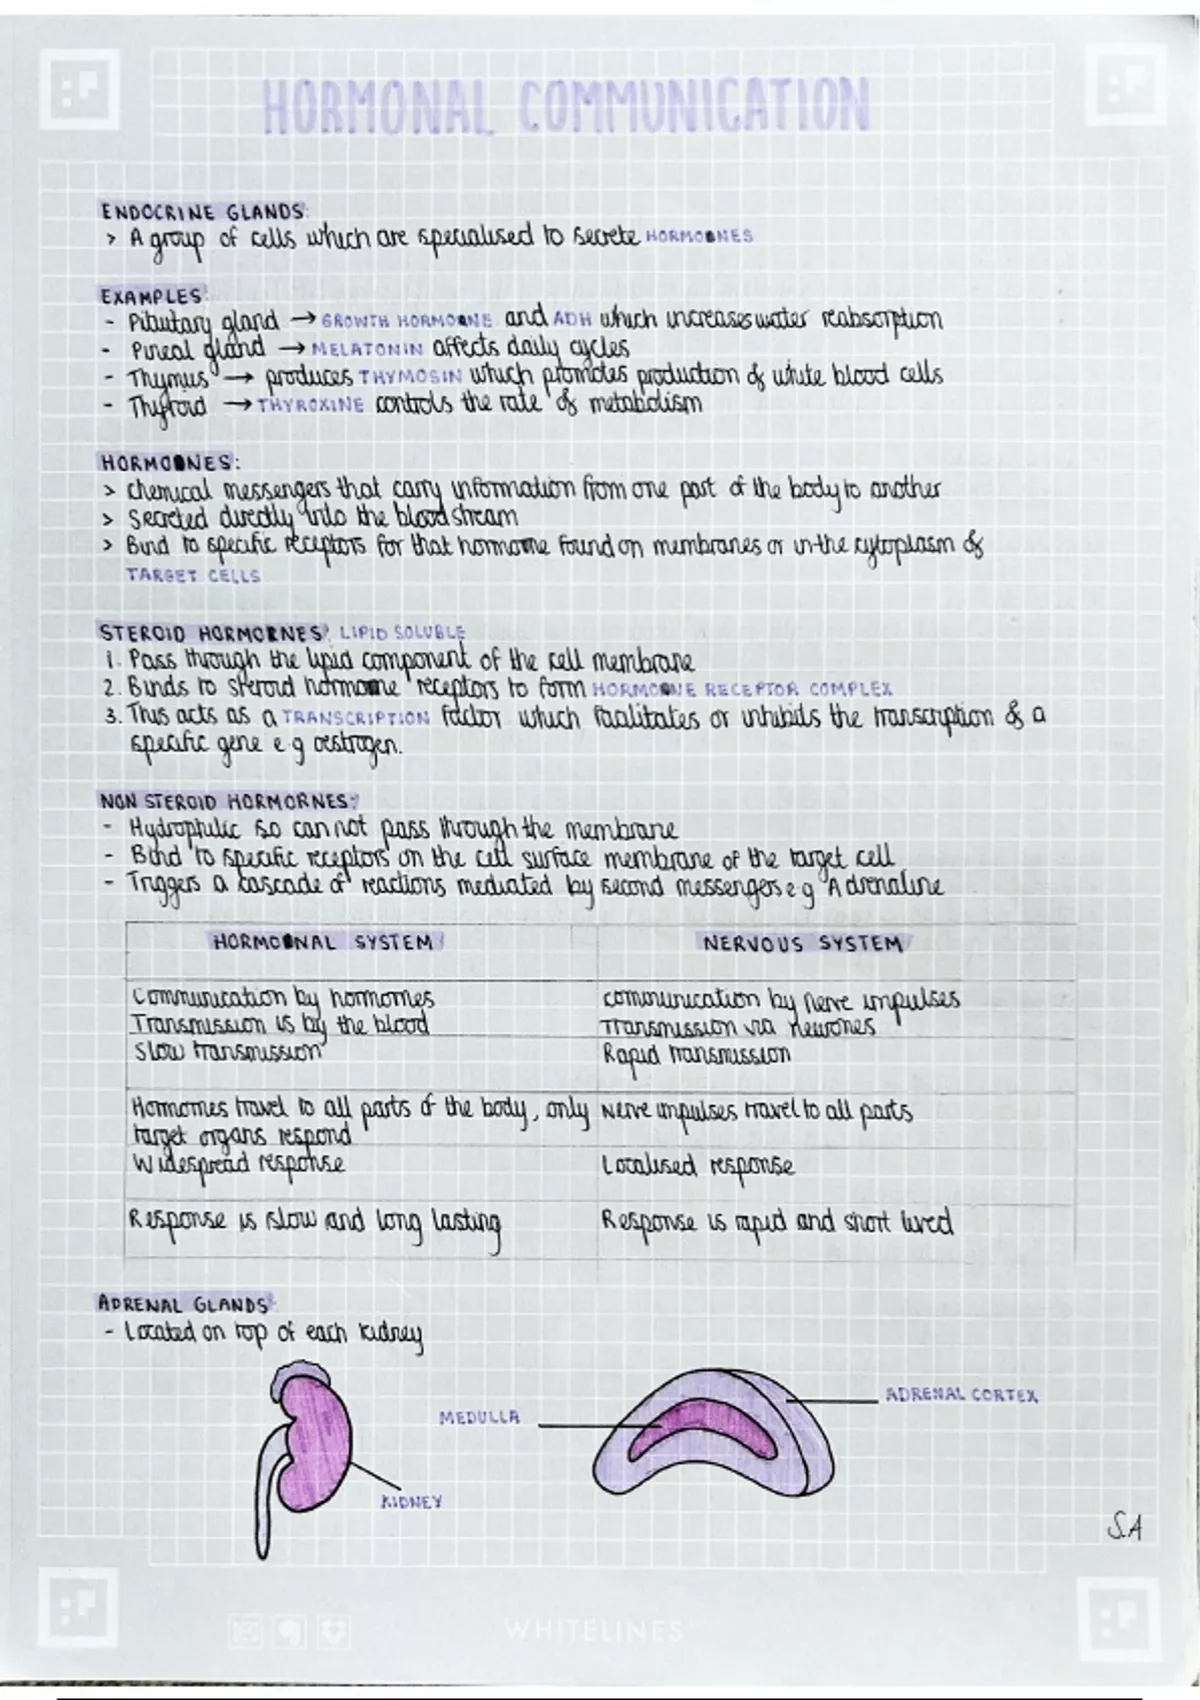 HORMONAL COMMUNICATION
ENDOCRINE GLANDS:
> A group of cells which are specialised to secrete HORMONES
EXAMPLES:
- Pituitary gland → GROWTH HORMONE and ADH which increases water reabsorption
- Pineal gland → MELATONIN affects daily cycles
- Thymus → produces THYMOSIN which promotes production of white blood cells
- Thyroid → THYROXINE controls the rate of metabolism
HORMONES:
> chemical messengers that carry information from one part of the body to another
> secreted directly into the bloodstream
> Bind to specific receptors for that hormone found on membranes or in the cytoplasm of
TARGET CELLS
STEROID HORMORNES: LIPID SOLUBLE
1. Pass through the lipid component of the cell membrane
2. Binds to steroid hormone receptors to form HORMONE RECEPTOR COMPLEX
3. This acts as a TRANSCRIPTION factor which facilitates or inhibits the transcription of a
specific gene e.g oestrogen.
NON STEROID HORMORNES:
- Hydrophilic so cannot pass through the membrane
- Bind to specific receptors on the cell surface membrane of the target cell
- Triggers a cascade of reactions mediated by second messengers e g Adrenaline
HORMONAL SYSTEM
NERVOUS SYSTEM
Communication by hormones
communication by nerve impulses
Transmission is by the blood
Transmission via neurones
Slow transmission
Rapid transmission
Hormones travel to all parts of the body, only
Nerve impulses travel to all parts
target organs respond
Widespread response
Localised response
Response is slow and long lasting
Response is rapid and short lived
ADRENAL GLANDS
- Located on top of each kidney
ADRENAL CORTEX
MEDULLA
KIDNEY
S.A
WHITELINES